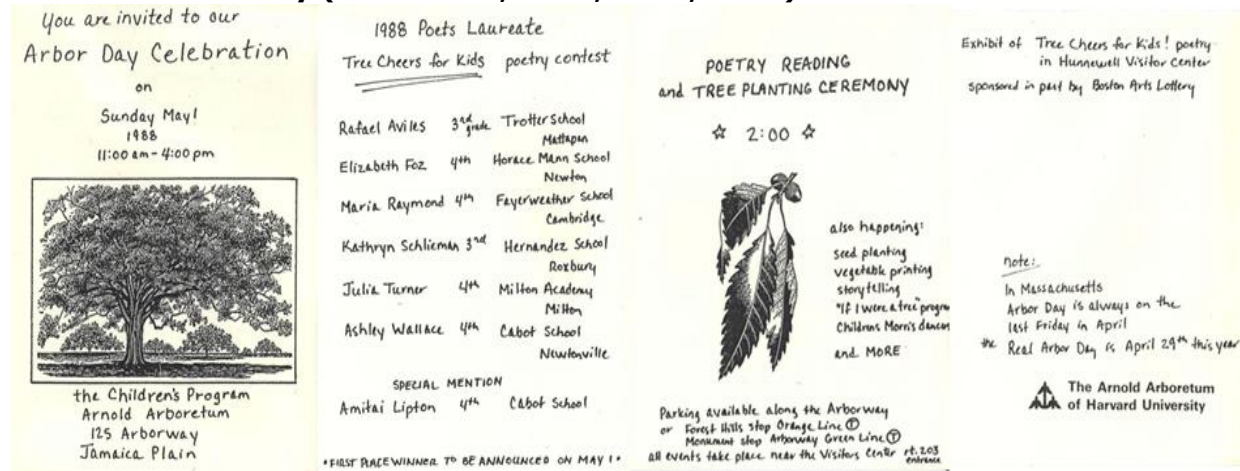 You are invited to our
Arbor Day Celebration
on
Sunday May 1
1988
11:00 am - 4:00 pm
the Children's Program
Arnold Arboretum
125 Arborway
Jamaica Plain
1988 Poets Laureate
Tree Cheers for Kids poetry contest
Rafael Aviles 3rd grade Trotter School
Mattapan
Elizabeth Foz 4th Horace Mann School
Newton
Maria Raymond 4th Fayerweather School
Cambridge
Kathryn Schlieman 3rd Hernandez School
Roxbury
Julia Turner 4th Milton Academy
Milton
Ashley Wallace 4th Cabot School
Newtonville
SPECIAL MENTION
Amitai Lipton 4th Cabot School
• FIRST PLACE WINNER TO BE ANNOUNCED ON MAY 1 •
POETRY READING
and TREE PLANTING CEREMONY
☆ 2:00 ☆
also happening:
seed planting
vegetable printing
storytelling
"If I were a tree" progra
Childrens Morris dances
and MORE
Parking available along the Arborway
or Forest Hills stop Orange Line Ⓣ
Monument stop Arborway Green Line Ⓣ
all events take place near the Visitors Center rt. 203
entrance
Exhibit of Tree Cheers for Kids! poetry
in Hunnewell Visitor Center
sponsored in part by Boston Arts Lottery
note:
In Massachusetts
Arbor Day is always on the
last Friday in April
the Real Arbor Day is April 29th this year
The Arnold Arboretum
of Harvard University